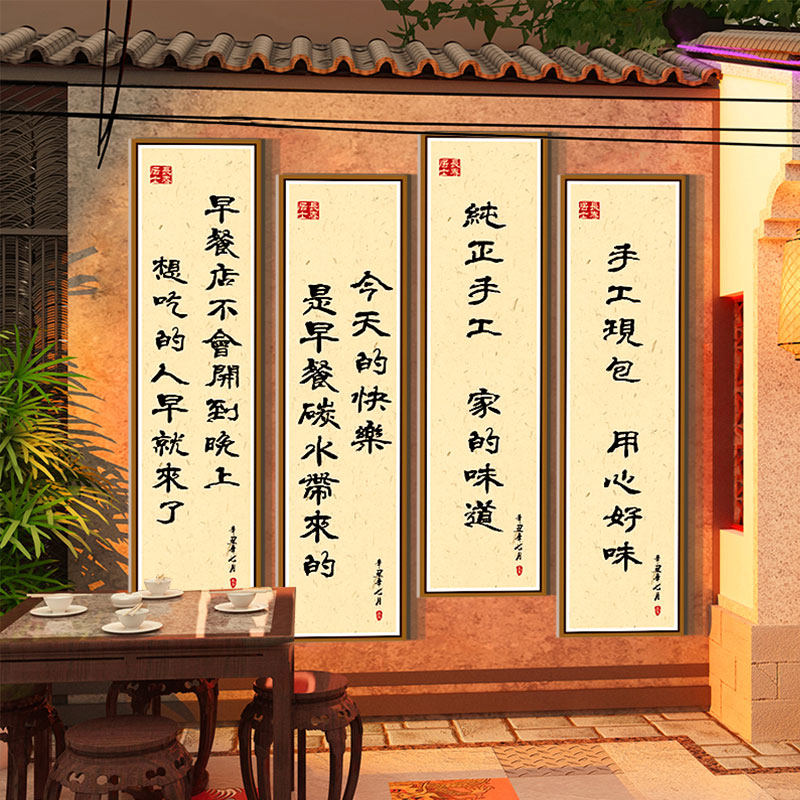 早餐店不會開到晚上
想吃的人早就來了
今天的快樂
是早餐碳水帶來的
純正手工 家的味道
手工現包 用心好味